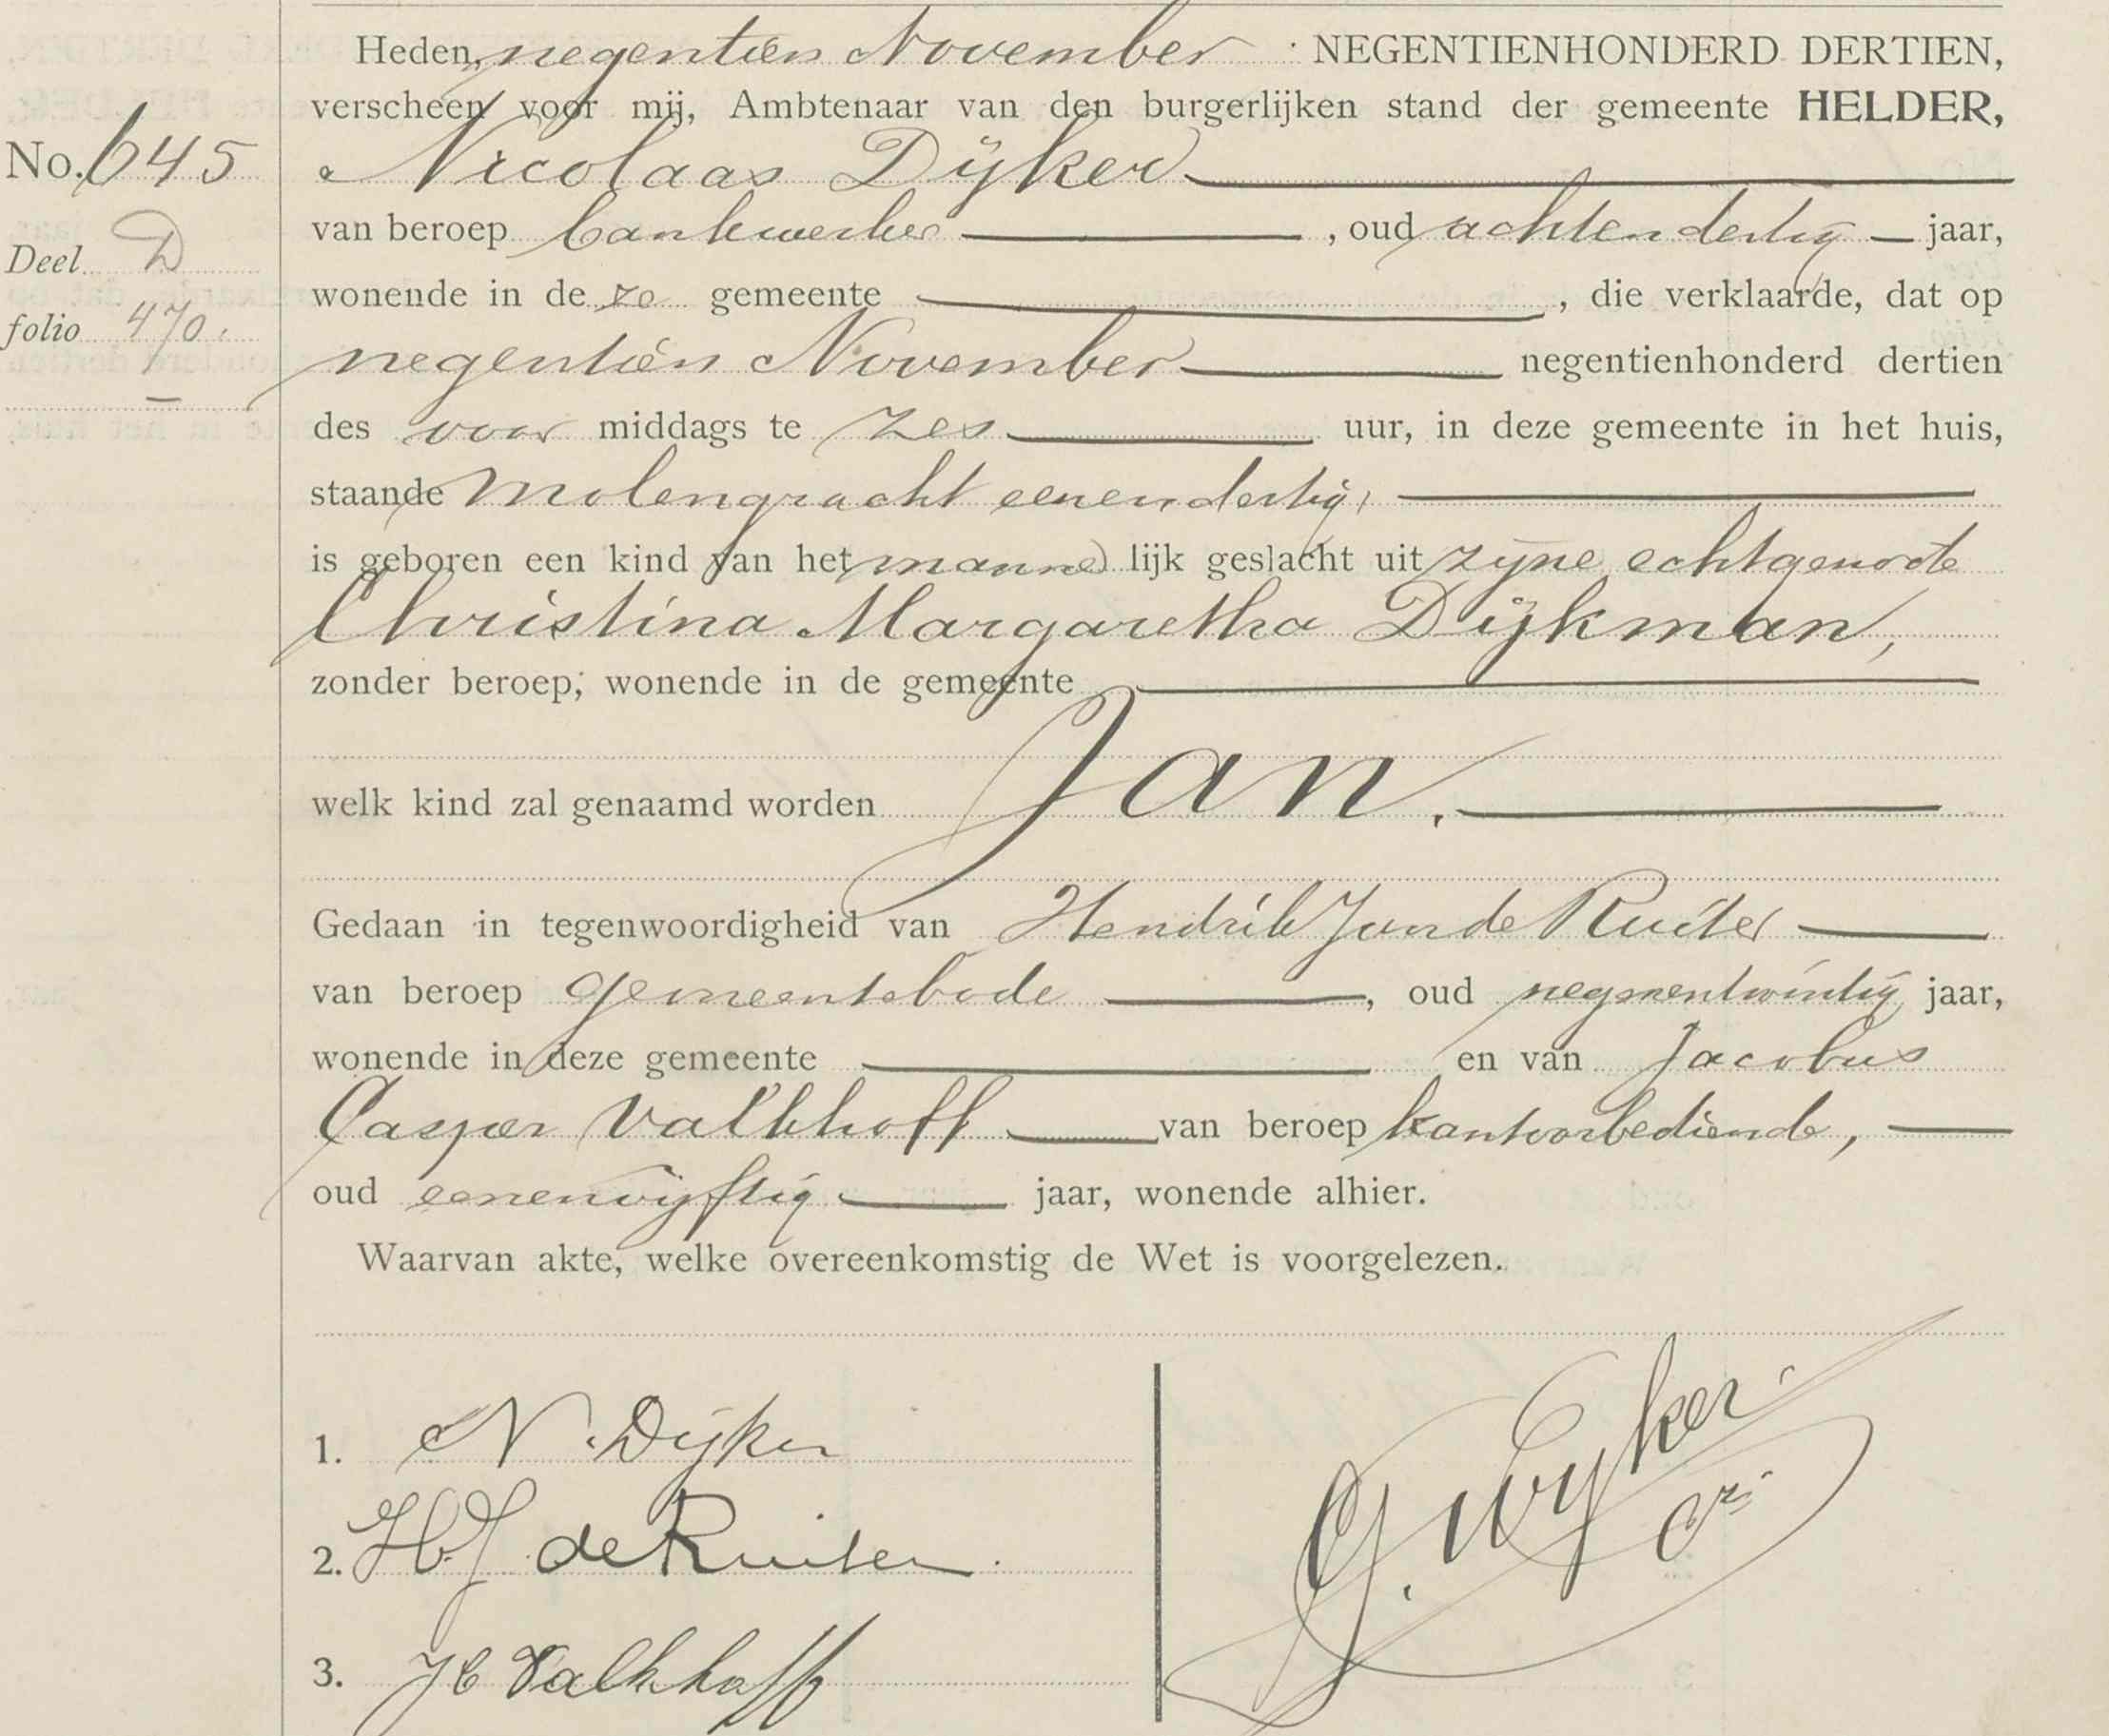 Heden, negentien November NEGENTIENHONDERD DERTIEN,
verscheen voor mij, Ambtenaar van den burgerlijken stand der gemeente HELDER,
No. 645
Nicolaas Dijker
van beroep bankwerker, oud achtendertig jaar,
Deel D
wonende in deze gemeente, die verklaarde, dat op
folio 470.
negentien November negentienhonderd dertien
des voor middags te zes uur, in deze gemeente in het huis,
staande Molengracht eenendertig,
is geboren een kind van het mannelijk geslacht uit zijne echtgenoote
Christina Margaretha Dijkman,
zonder beroep, wonende in de gemeente
welk kind zal genaamd worden Jan.
Gedaan in tegenwoordigheid van Hendrik Jan de Ruiter
van beroep gemeentebode, oud negenentwintig jaar,
wonende in deze gemeente en van Jacobus
Casper Valkhoff van beroep kantoorbediende,
oud eenenvijftig jaar, wonende alhier.
Waarvan akte, welke overeenkomstig de Wet is voorgelezen.
1. N. Dijker
2. H.J. de Ruiter.
3. J C Valkhoff